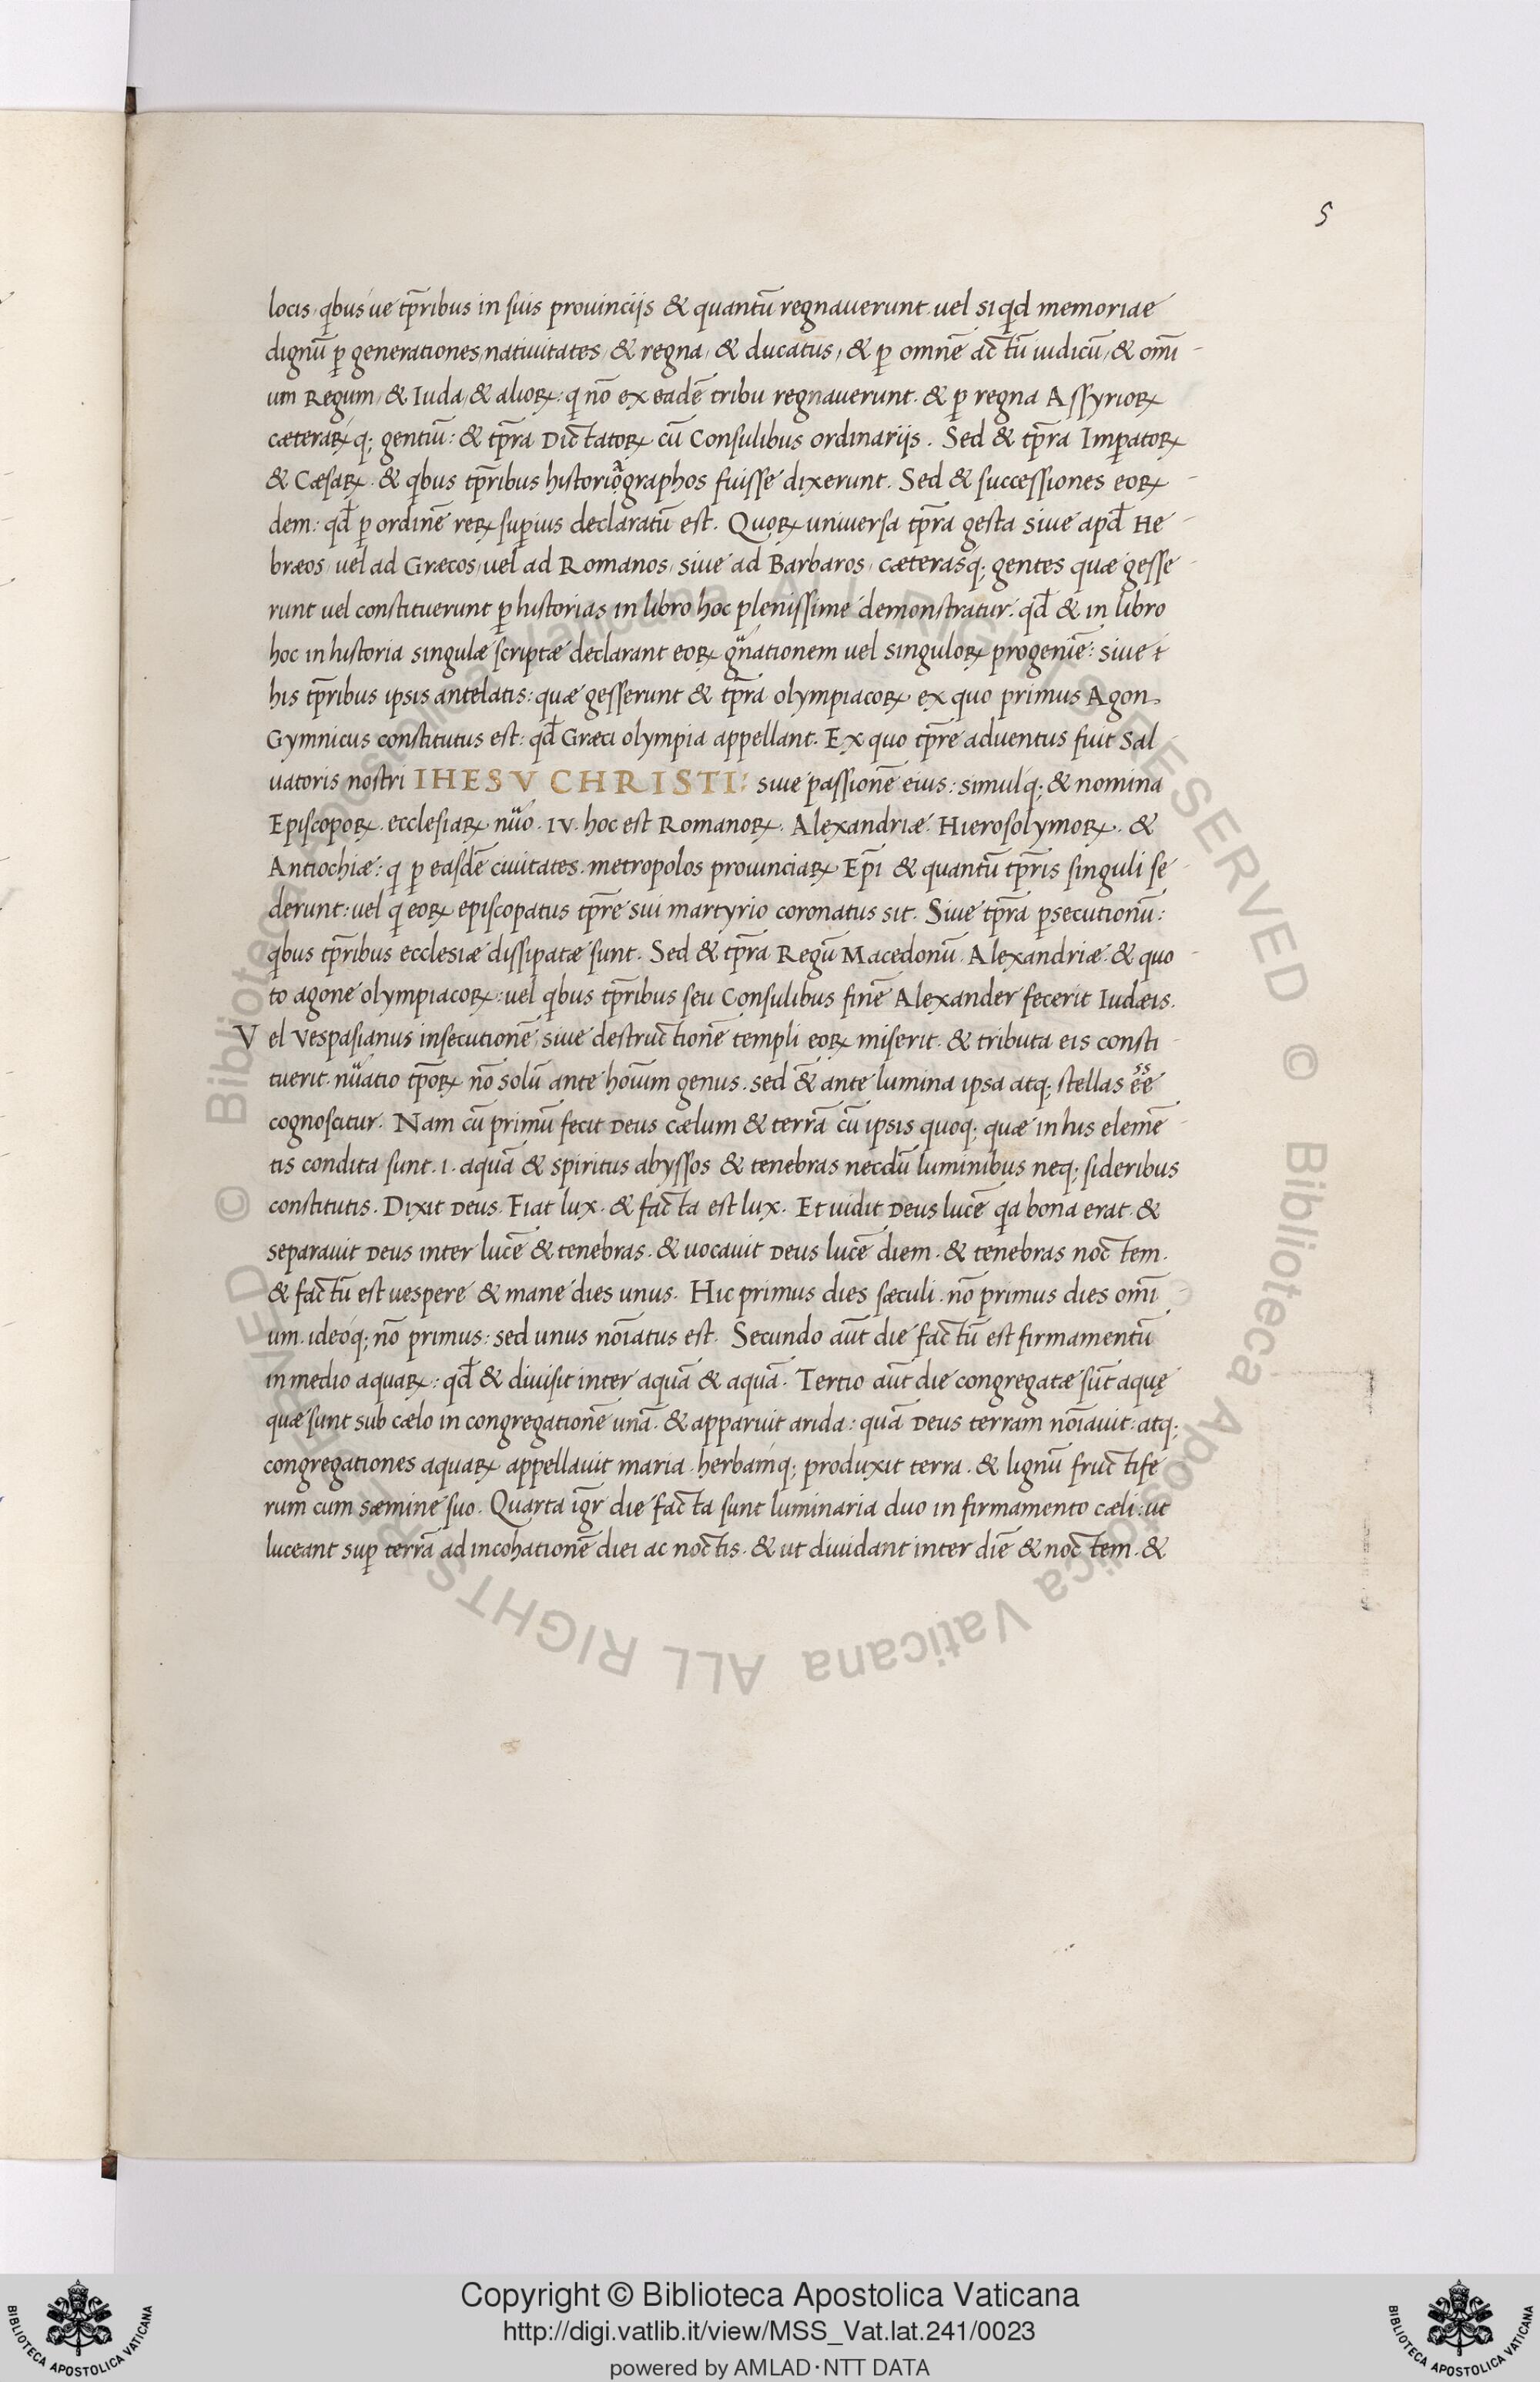 5
locis, qbus ue tp̄ribus in suis prouincijs & quantū regnauerunt. uel si qd memoriae
dignū ꝑ generationes, natiuitates, & regna, & ducatus, & ꝑ omnē actū iudicū, & om̄i-
um Regum, & Iuda, & alioꝝ: q nō ex eadē tribu regnauerunt. & ꝑ regna Assyrioꝝ
cæteraꝝ q; gentiū: & tp̄ra Dictatoꝝ cū Consulibus ordinarijs. Sed & tp̄ra Imꝑatoꝝ
& Cæsaꝝ. & qbus tp̄ribus historiọagraphos fuisse dixerunt. Sed & successiones eoꝝ-
dem: qd̄ ꝑ ordinē reꝝ suꝑius declaratū est. Quoꝝ uniuersa tp̄ra gesta siue apd̄ He-
bræos, uel ad Græcos, uel ad Romanos, siue ad Barbaros, cæterasq; gentes quæ gesse-
runt uel constituerunt ꝑ historias in libro hoc plenissime demonstratur. qd̄ & in libro
hoc in historia singulæ scriptæ declarant eoꝝ gn̄ationem uel singuloꝝ progeniē: siue ī
his tp̄ribus ipsis antelatis: quæ gesserunt & tp̄ra olympiacoꝝ ex quo primus Agon
Gymnicus constitutus est: qd̄ Græci olympia appellant. Ex quo tp̄re aduentus fuit Sal-
uatoris nostri IHESV CHRISTI: siue passionē eius: simulq; & nomina
Episcopoꝝ. ecclesiaꝝ nūo. IV. hoc est Romanoꝝ. Alexandriæ. Hierosolymoꝝ. &
Antiochiæ: q ꝑ easdē ciuitates. metropolos prouinciaꝝ Ep̄i & quantū tp̄ris singuli se-
derunt: uel q eoꝝ episcopatus tp̄re sui martyrio coronatus sit. Siue tp̄ra ꝑsecutionū:
qbus tp̄ribus ecclesiæ dissipatæ sunt. Sed & tp̄ra Regū Macedonū. Alexandriæ. & quo-
to agone olympiacoꝝ: uel qbus tp̄ribus seu Consulibus finē Alexander fecerit Iudæis.
Vel Vespasianus insecutionē, siue destructionē templi eoꝝ miserit. & tributa eis consti-
tuerit. nūatio tp̄oꝝ nō solū ante hoīum genus. sed & ante lumina ipsa atq; stellas ēssē
cognoscitur. Nam cū primū fecit Deus cælum & terrā cū ipsis quoq; quæ in his elemē-
tis condita sunt. i. aquā & spiritus abyssos & tenebras necdū luminibus neq; sideribus
constitutis. Dixit Deus. Fiat lux. & facta est lux. Et uidit Deus lucē qa bona erat. &
separauit Deus inter lucē & tenebras. & uocauit Deus lucē diem. & tenebras noctem.
& factū est uespere & mane dies unus. Hic primus dies sæculi. nō primus dies om̄i-
um. ideoq; nō primus: sed unus noīatus est. Secundo aūt die factū est firmamentū
in medio aquaꝝ: qd̄ & diuisit inter aquā & aquā. Tertio aūt die congregatæ sūt aquę
quæ sunt sub cælo in congregationē unā. & apparuit arida: quā Deus terram noīauit. atq;
congregationes aquaꝝ appellauit maria. herbamq; produxit terra. & lignū fructife-
rum cum sæmine suo. Quarta igr̄ die facta sunt luminaria duo in firmamento cæli: ut
luceant suꝑ terrā ad incohationē diei ac noctis. & ut diuidant inter diē & noctem. &
© Biblioteca Apostolica Vaticana ALL RIGHTS RESERVED © Biblioteca Apostolica Vaticana ALL RIGHTS RESERVED
Copyright © Biblioteca Apostolica Vaticana
http://digi.vatlib.it/view/MSS_Vat.lat.241/0023
powered by AMLAD·NTT DATA
BIBLIOTECA APOSTOLICA VATICANA
BIBLIOTECA APOSTOLICA VATICANA